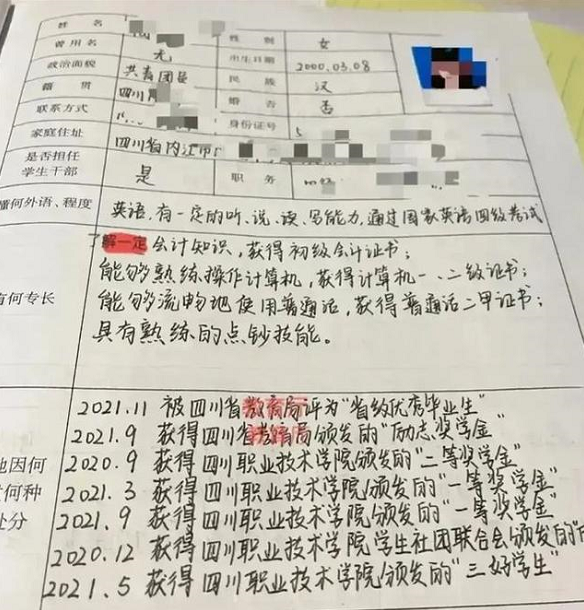 姓名
曾用名 无 性别 女
政治面貌 共青团员 出生日期 2000.03.08
籍贯 四川 民族 汉
联系方式 婚否 否
家庭住址 四川省内江市 身份证号 5
是否担任
学生干部 是 职务
懂何外语、程度 英语,有一定的听、说、读、写能力,通过国家英语四级考试
了解一定会计知识,获得初级会计证书;
能够熟练操作计算机,获得计算机一、二级证书;
有何专长 能够流畅地使用普通话,获得普通话二甲证书;
具有熟练的点钞技能。
2021.11 被四川省教育局评为"省级优秀毕业生"
2021.9 获得四川省教育局颁发的"励志奖学金"
因何 2020.9 获得四川职业技术学院颁发的"二等奖学金"
何种 2021.3 获得四川职业技术学院颁发的"一等奖学金"
处分 2021.9 获得四川职业技术学院颁发的"一等奖学金"
2020.12 获得四川职业技术学院学生社团联合会颁发的"
2021.5 获得四川职业技术学院颁发的"三好学生"